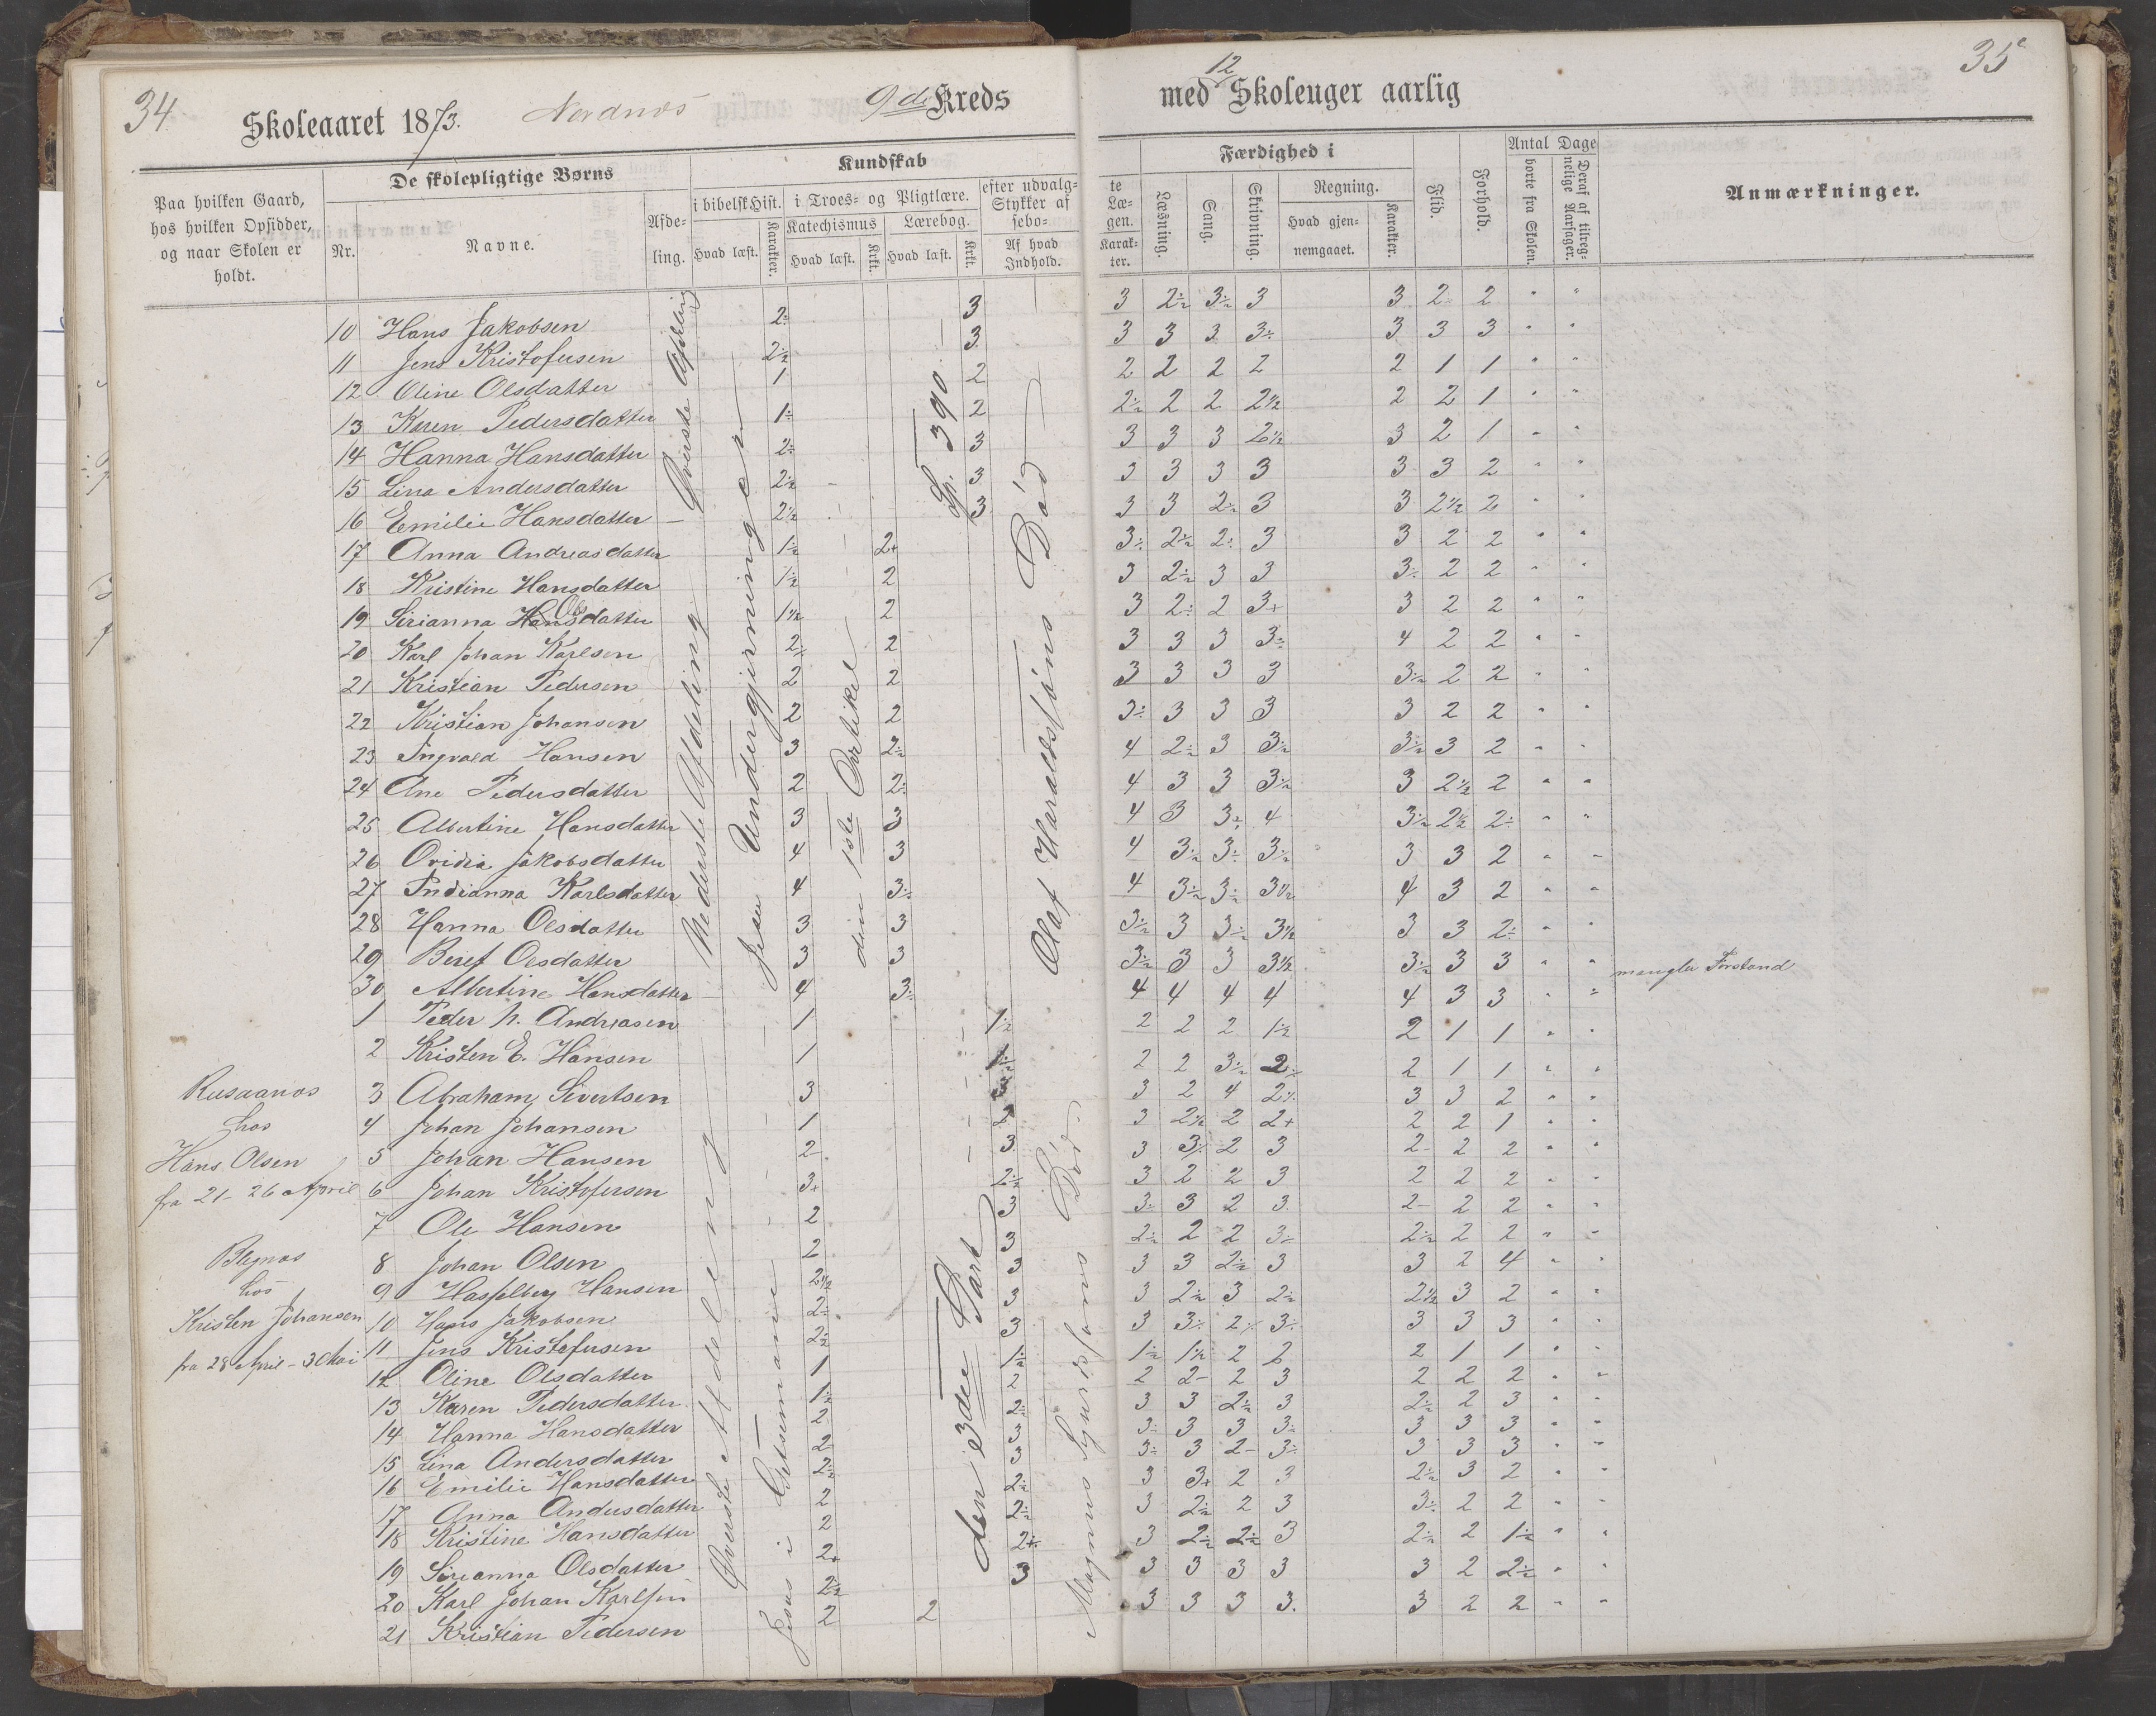 34
Skoleaaret 1873.
Nordnæs
9de Kreds
med 12 Skoleuger aarlig
35
Paa hvilken Gaard, hos hvilken Opsidder, og naar Skolen er holdt.
De skolepligtige Børns
Nr.
Navne.
Afdeling.
Kundskab
i bibelsk Hist.
Hvad læst.
Karakter.
i Troes- og Pligtlære.
Katechismus
Hvad læst.
Krkt.
Lærebog.
Hvad læst.
Krkt.
efter udvalg-
Stykker af
sebo-
Af hvad
Indhold.
te
Læ-
gen.
Karak-
ter.
Færdighed i
Læsning.
Sang.
Skrivning.
Regning.
Hvad gjen-
nemgaaet.
Karakter.
Flid.
Forhold.
Antal Dage
borte fra Skolen.
Deraf af tilreg-
nelige Aarsager.
Anmærkninger.
10 Hans Jakobsen 2÷ 3 3 2÷ 3÷ 3 3 2 2 " "
11 Jens Kristofersen 2½ 3 3 3 3 3÷ 3 3 3 " "
12 Oline Olsdatter 1 2 2 2 2 2 2 1 1 " "
13 Karen Pedersdatter 1÷ 2 2÷ 2 2 2½ 2 2 1 " "
14 Hanna Hansdatter 2÷ 3 3 3 3 2½ 3 2 1 " "
15 Lina Andersdatter 2½ 3 3 3 3 3 3 3 2 " "
16 Emilie Hansdatter 2½ 3 3 3 2÷ 3 3 2½ 2 " "
17 Anna Andreasdatter 1½ 2+ 3÷ 2½ 2÷ 3 3 2 2 " "
18 Kristine Hansdatter 1½ 2 3 2½ 3 3 3÷ 2 2 " "
19 Sirianna Olsdatter 1½ 2 3 2÷ 2 3+ 3 2 2 " "
20 Karl Johan Karlsen 2÷ 2 3 3 3 3÷ 4 2 2 " "
21 Kristian Pedersen 2 2 3 3 3 3 3½ 2 2 " "
22 Kristian Johansen 2 2 3÷ 3 3 3 3 2 2 " "
23 Ingvald Hansen 3 2½ 4 2÷ 3 3½ 3½ 3 2 " "
24 Ane Pedersdatter 2 2÷ 4 3 3 3½ 3 2½ 2 " "
25 Albertine Hansdatter 3 3 4 3 3÷ 4 3½ 2½ 2÷ " "
26 Ovidia Jakobsdatter 4 3 4 3½ 3÷ 3½ 3 3 2 " "
27 Indianna Karlsdatter 4 3÷ 4 3½ 3÷ 3½ 4 3 2 " "
28 Hanna Olsdatter 3 3 3½ 3 3½ 3½ 3 3 2÷ " "
29 Beret Olsdatter 3 3 3½ 3 3 3½ 3½ 3 3 " " mangler Forstand
30 Albertine Hansdatter 4 3÷ 4 4 4 4 4 3 3 " "
Øverste Afdeling
Nederste Afdeling
Jesu Undergjerninger
den 1ste Artikel
Sp. 390.
Olaf Haraldssøns Død
1 Peder N. Andreasen 1 1½ 2 2 2 1½ 2 1 1 " "
2 Kristen E. Hansen 1 1½ 2 2 3½ 2÷ 2 1 1 " "
Rusaanæs
hos
Hans Olsen
fra 21-26 April
3 Abraham Sivertsen 3 3 3 2 4 2½ 3 3 2 " "
4 Johan Johansen 1 2 3 2½ 2 2+ 2 2 1 " "
5 Johan Hansen 2- 3 3 3÷ 2 3 2- 2 2 " "
6 Johan Kristofersen 3+ 2½ 3 2 2 3 2 2 2 " "
7 Ole Hansen 2 3 3÷ 3 2 3 2- 2 2 " "
Bleynæs
hos
Kristen Johansen
fra 28 April - 3 Mai
8 Johan Olsen 2 3 2½ 2 2 3÷ 2½ 2 2 " "
9 Hasselberg Hansen 2½ 3 3 3 2½ 3 3 2 4 " "
10 Hans Jakobsen 2÷ 3 3 2½ 3 2½ 2½ 3 2 " "
11 Jens Kristofersen 2½ 3 3 3÷ 2÷ 3÷ 3 3 3 " "
12 Oline Olsdatter 1 1½ 1½ 1½ 2 2 2 1 1 " "
13 Karen Pedersdatter 1½ 2 2 2- 2 3 2 2 2 " "
14 Hanna Hansdatter 2 2÷ 3 3 2½ 3 2½ 2 3 " "
15 Lina Andersdatter 2 3 3÷ 3 3 3÷ 3 3 3 " "
16 Emilie Hansdatter 2÷ 3 3÷ 3 2- 3÷ 3 3 3 " "
17 Anna Andersdatter 2 2÷ 3 3+ 2 3 2½ 3 2 " "
18 Kristine Hansdatter 2 2÷ 3 2½ 2 3 3÷ 2 2 " "
19 Sirianna Olsdatter 2+ 2+ 3 2½ 2½ 3 2½ 2 1½ " "
20 Karl Johan Karlsen 2½ 3 3 3 3 3 3 2 2½ " "
21 Kristian Pedersen 2 2 3 3 3 3. 3 2 2 " "
Øverste Afdeling
Jesus i Getsemane
den 3die Part
Magnus Sigurdssøns Død